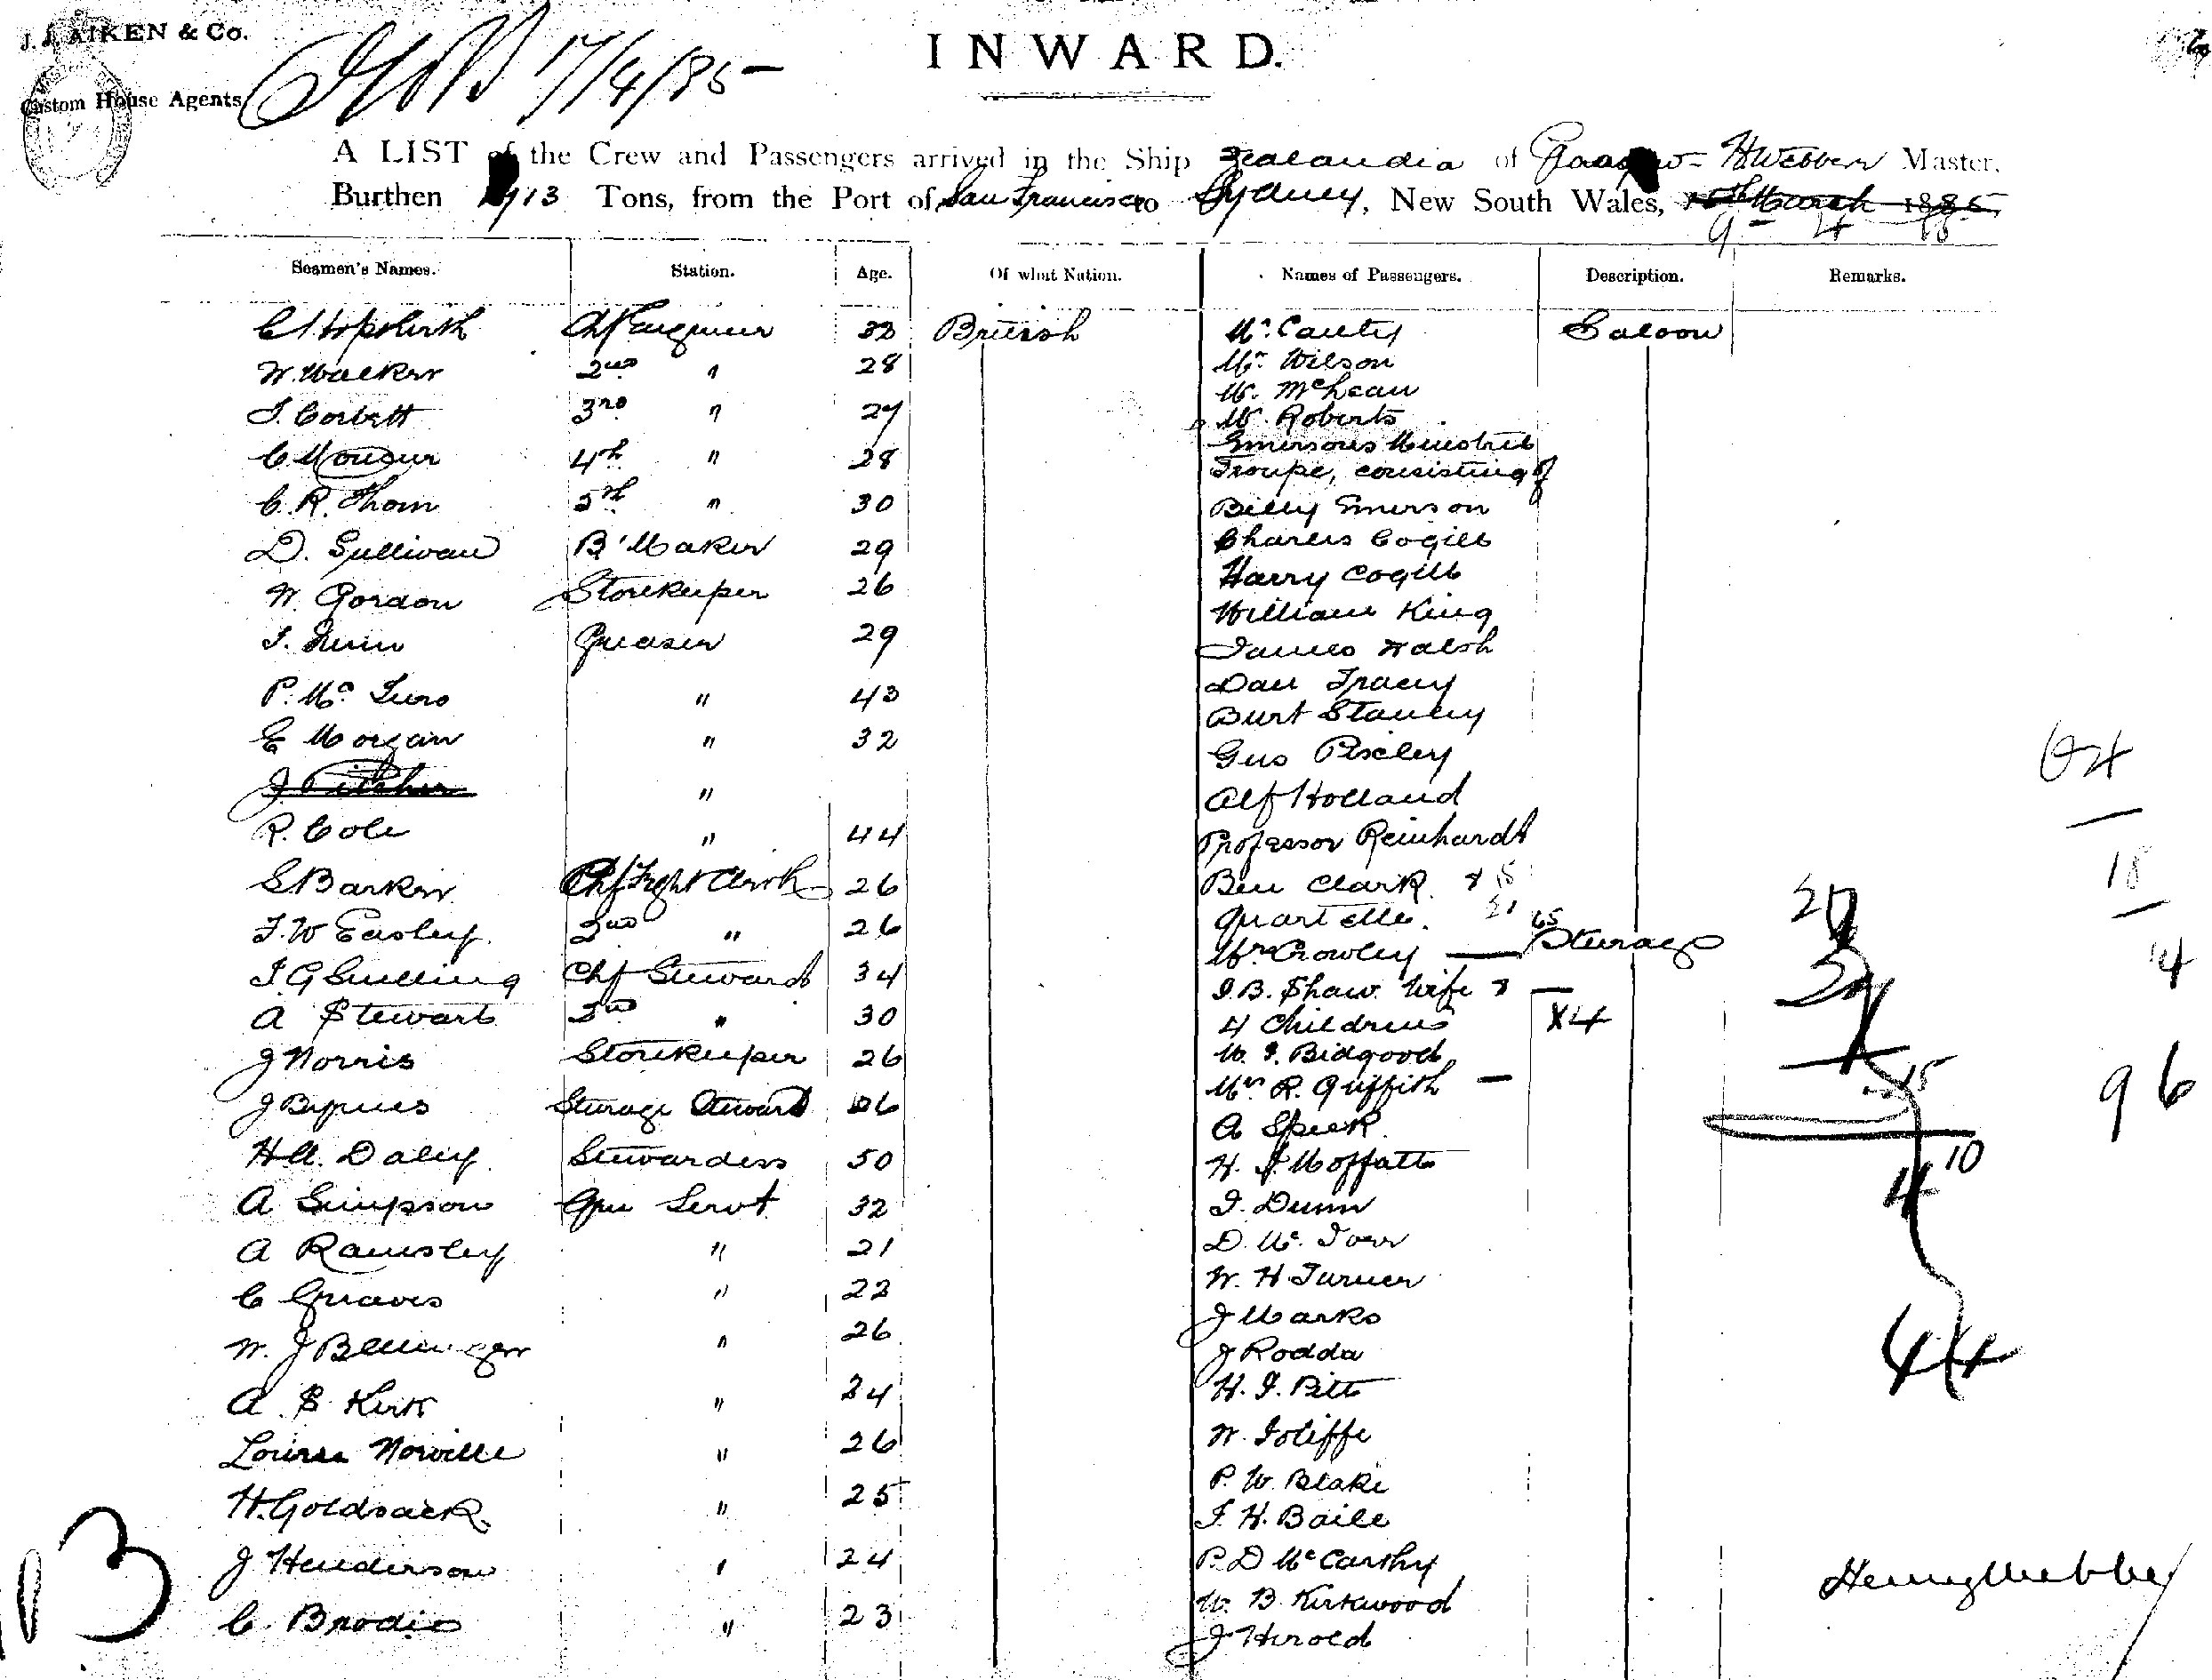 J. J. AIKEN & Co.
Custom House Agents
17/4/85
INWARD.
A LIST of the Crew and Passengers arrived in the Ship Zealandia of Glasgow H Webber Master,
Burthen Tons, from the Port of San Francisco to Sydney, New South Wales, 15th March 1885,
9 - 4 - 85
Seamen's Names. Station. Age. Of what Nation. Names of Passengers. Description. Remarks.
33 British Mr. Cauty Saloon
W. Walker 2nd " 28 Mr. Wilson
Mr. McLean
J. Corbett 3rd " 27 Mr. Roberts
Emersons Minstrel
4th " 28 Troupe, consisting of
C. R. Thom 5th " 30 Billy Emerson
D. Sullivan B'Maker 29 Charles Cogill
W. Gordon Storekeeper 26 Harry Cogill
William King
Greaser 29 James Walsh
P. Mc " 43 Dan Tracey
Burt Stanley
E Morgan " 32 Gus Pixley
J Pitcher " Alf Holland
R. Cole " 44 Professor Reinhardt
S Barker Chf Frght Clerk 26 Ben Clark
F. W Easley 2nd " 26 Quartette.
Mr Crowley Steerage
J G Snelling Chf Steward 34 J. B. Shaw Wife &
A Stewart 2nd " 30 4 Childrens X4
J Norris Storekeeper 26 W. J. Bidgood
Mrs R. Griffith
J Byrnes Steerage Steward 26 A Speek
H M. Daley Stewardess 50 H. J Moffatt
A Simpson Gen Servt 32 J. Dunn
A Ramsley " 21 D. Mc.
C Greaves " 22 W. H Turner
J Marks
W. J " 26 J Rodda
A. S Kirk " 24 H. J. Pitt
Louisa Norville " 26 W. Joliffe
P. W. Blake
H. Goldsack. " 25 F. H. Baile
J Henderson " 24 P. D McCarthy
W. B Kirkwood
C. Brodie " 23 J Herold
64
18
14
96
15
10
44
Henry Webber